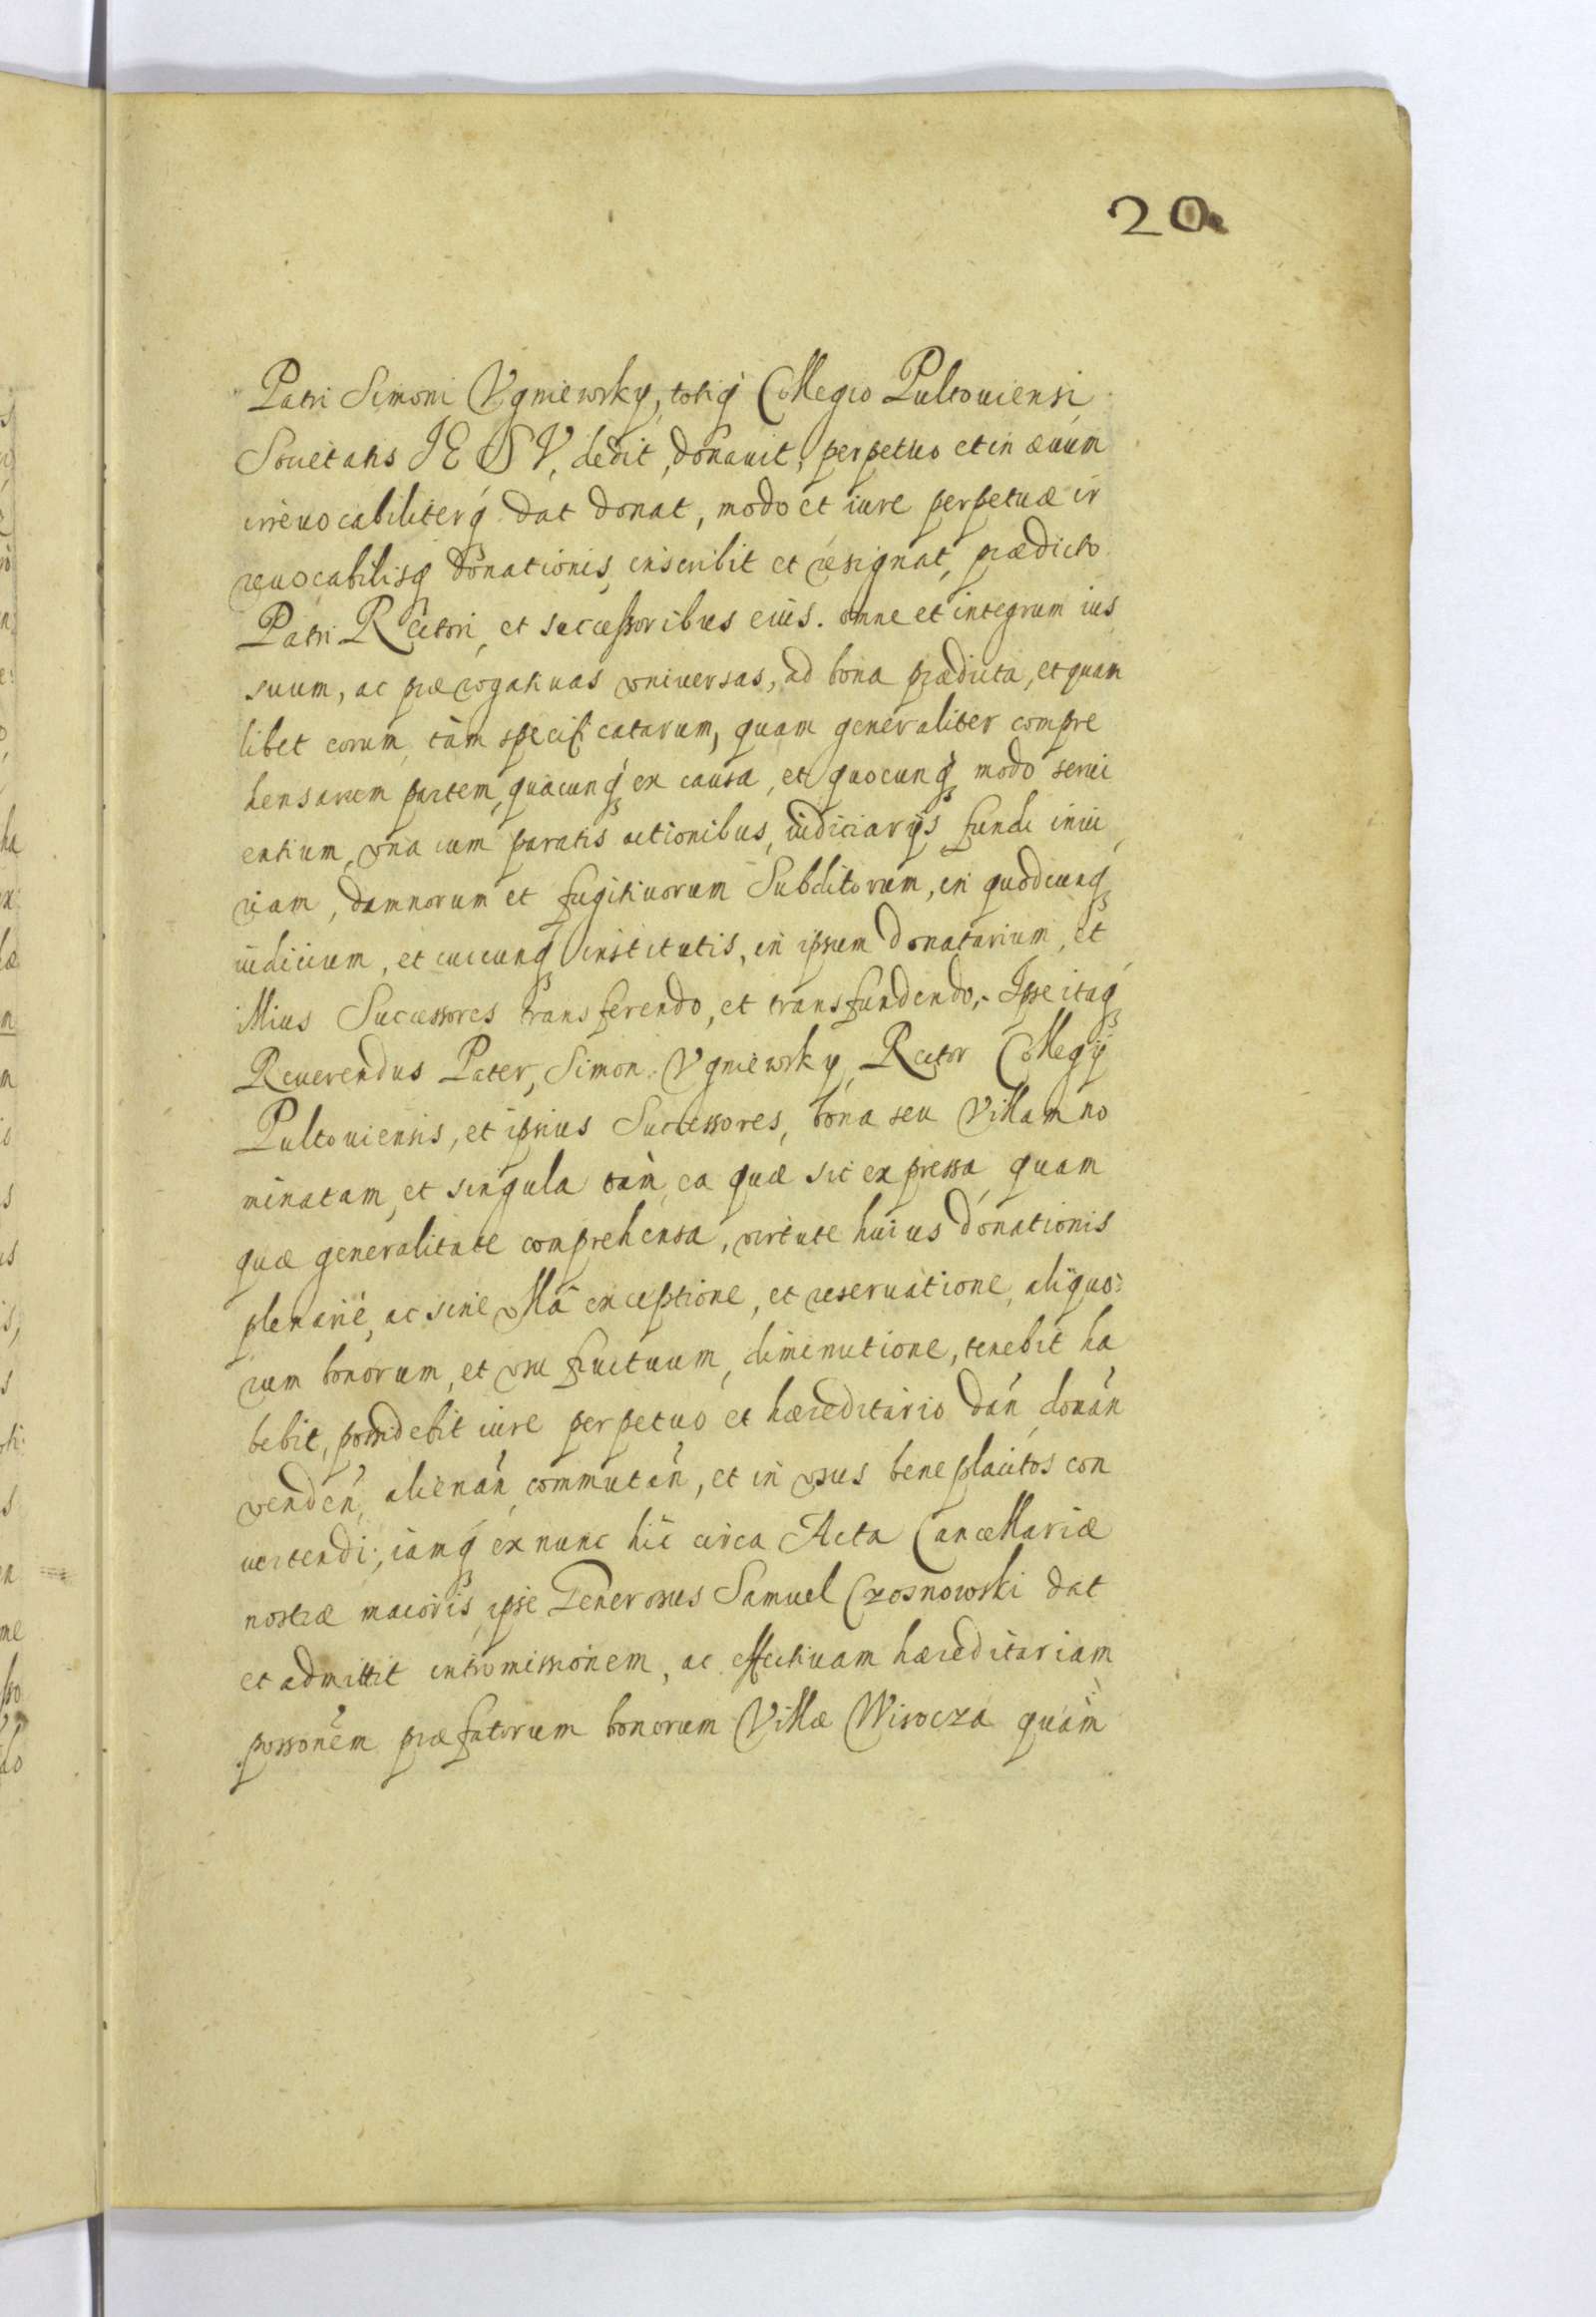 20
Patri Simoni Vgniewsky, totiq́ Collegio Pultouiensi
Societatis IESV, dedit, donauit, perpetuo et in æuum
irreuocabiliterq́ dat donat, modo et iure perpetuæ ir
reuocabilisq́ donationis, inscribit et resignat, prædicto
Patri Rectori, et successoribus eius. omne et integrum ius
suum, ac prærogatiuas vniuersas, ad bona prædicta, et quam
libet eorum, tàm specificatarum, quam generaliter compre
hensarum partem, quacunq́ ex causa, et quocunq́ modo serui
entium, vna cum paratis actionibus, iudiciarijs fundi iniu
riam, damnorum et fugitiuorum Subditorum, in quodcunq́
iudicium, et cuicunq́ institutis, in ipsum donatarium, et
illius Successores transferendo, et transfundendo. Ipse itaq́
Reuerendus Pater, Simon Vgniewsky, Rector Collegij
Pultouiensis, et ipsius Successores, bona seu Villam no
minatam, et singula tàm ea quæ sic expressa, quam
quæ generalitate comprehensa, virtute huius donationis
plenariè, ac sine vllâ exceptione, et reseruatione, aliquo:
rum bonorum, et vsu fructuum, diminutione, tenebit ha
bebit, possidebit iure perpetuo et hæreditario dan̄ donan̄
venden̄, alienan̄, commutan̄, et in vsus beneplacitos con
uertendi; iamq́ ex nunc hîc circa Acta Cancellariæ
nostræ maioris, ipse Generosus Samuel Czosnowski dat
et admittit intromissionem, ac effectiuam hæreditariam
possonem præfatorum bonorum Villæ Wisocza quàm